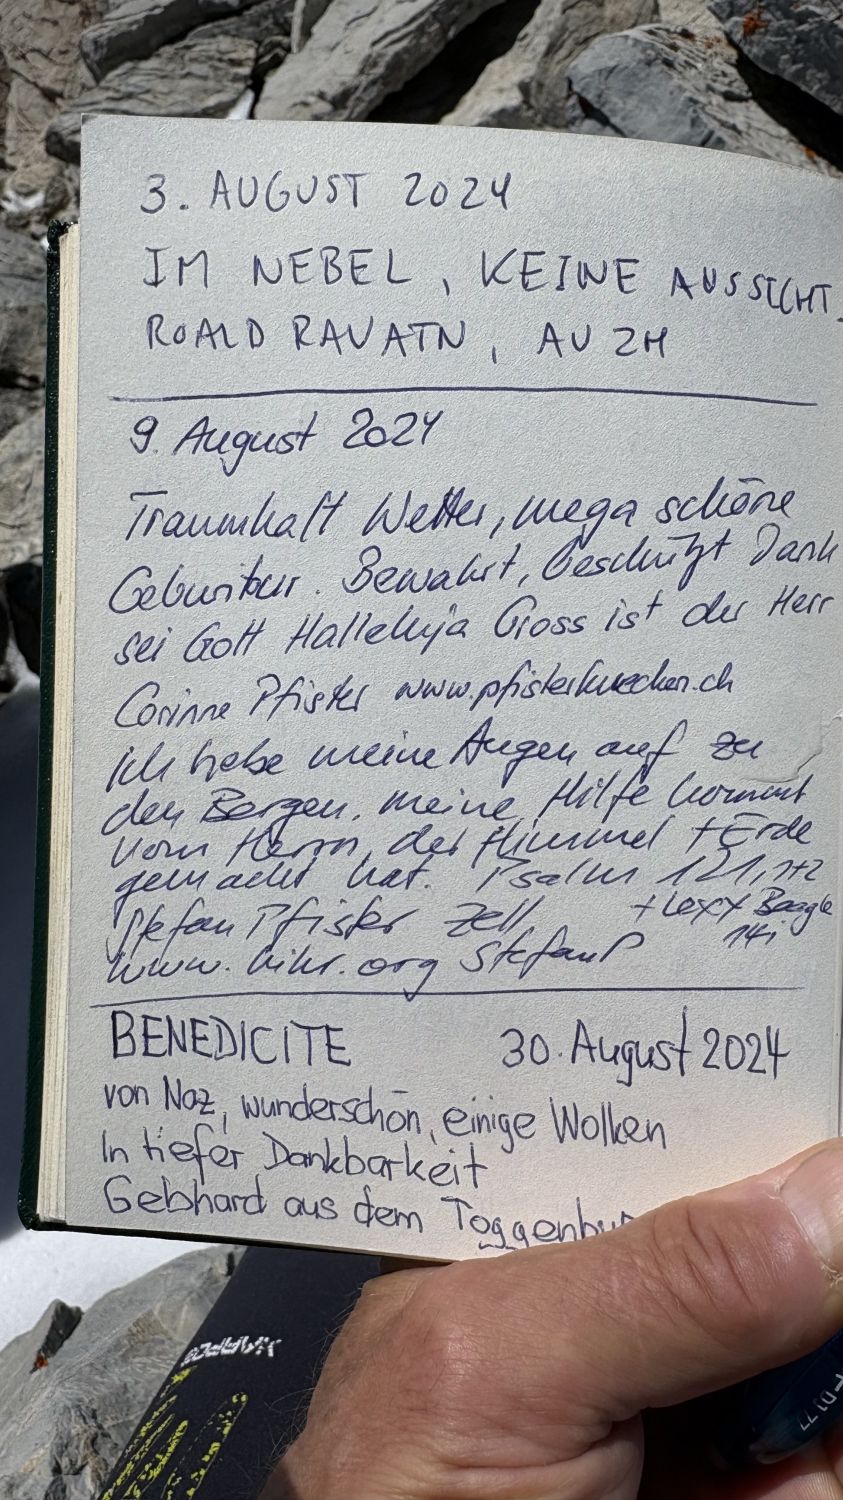 3. AUGUST 2024
IM NEBEL, KEINE AUSSICHT.
ROALD RAVATN, AU ZH
9. August 2024
Traumhaft Wetter, mega schöne
Geburitour. Bewahrt, beschützt Dank
sei Gott Halleluja Gross ist der Herr
Corinne Pfister www.pfisterkuechen.ch
Ich hebe meine Augen auf zu
den Bergen, meine Hilfe kommt
vom Herrn, der Himmel + Erde
gemacht hat. Psalm 121,1+2
Stefan Pfister Zell + Lexx Beagle
www.hikr.org StefanP 14j
BENEDICITE 30. August 2024
von Naz, wunderschön, einige Wolken
In tiefer Dankbarkeit
Gebhard aus dem Toggenbu